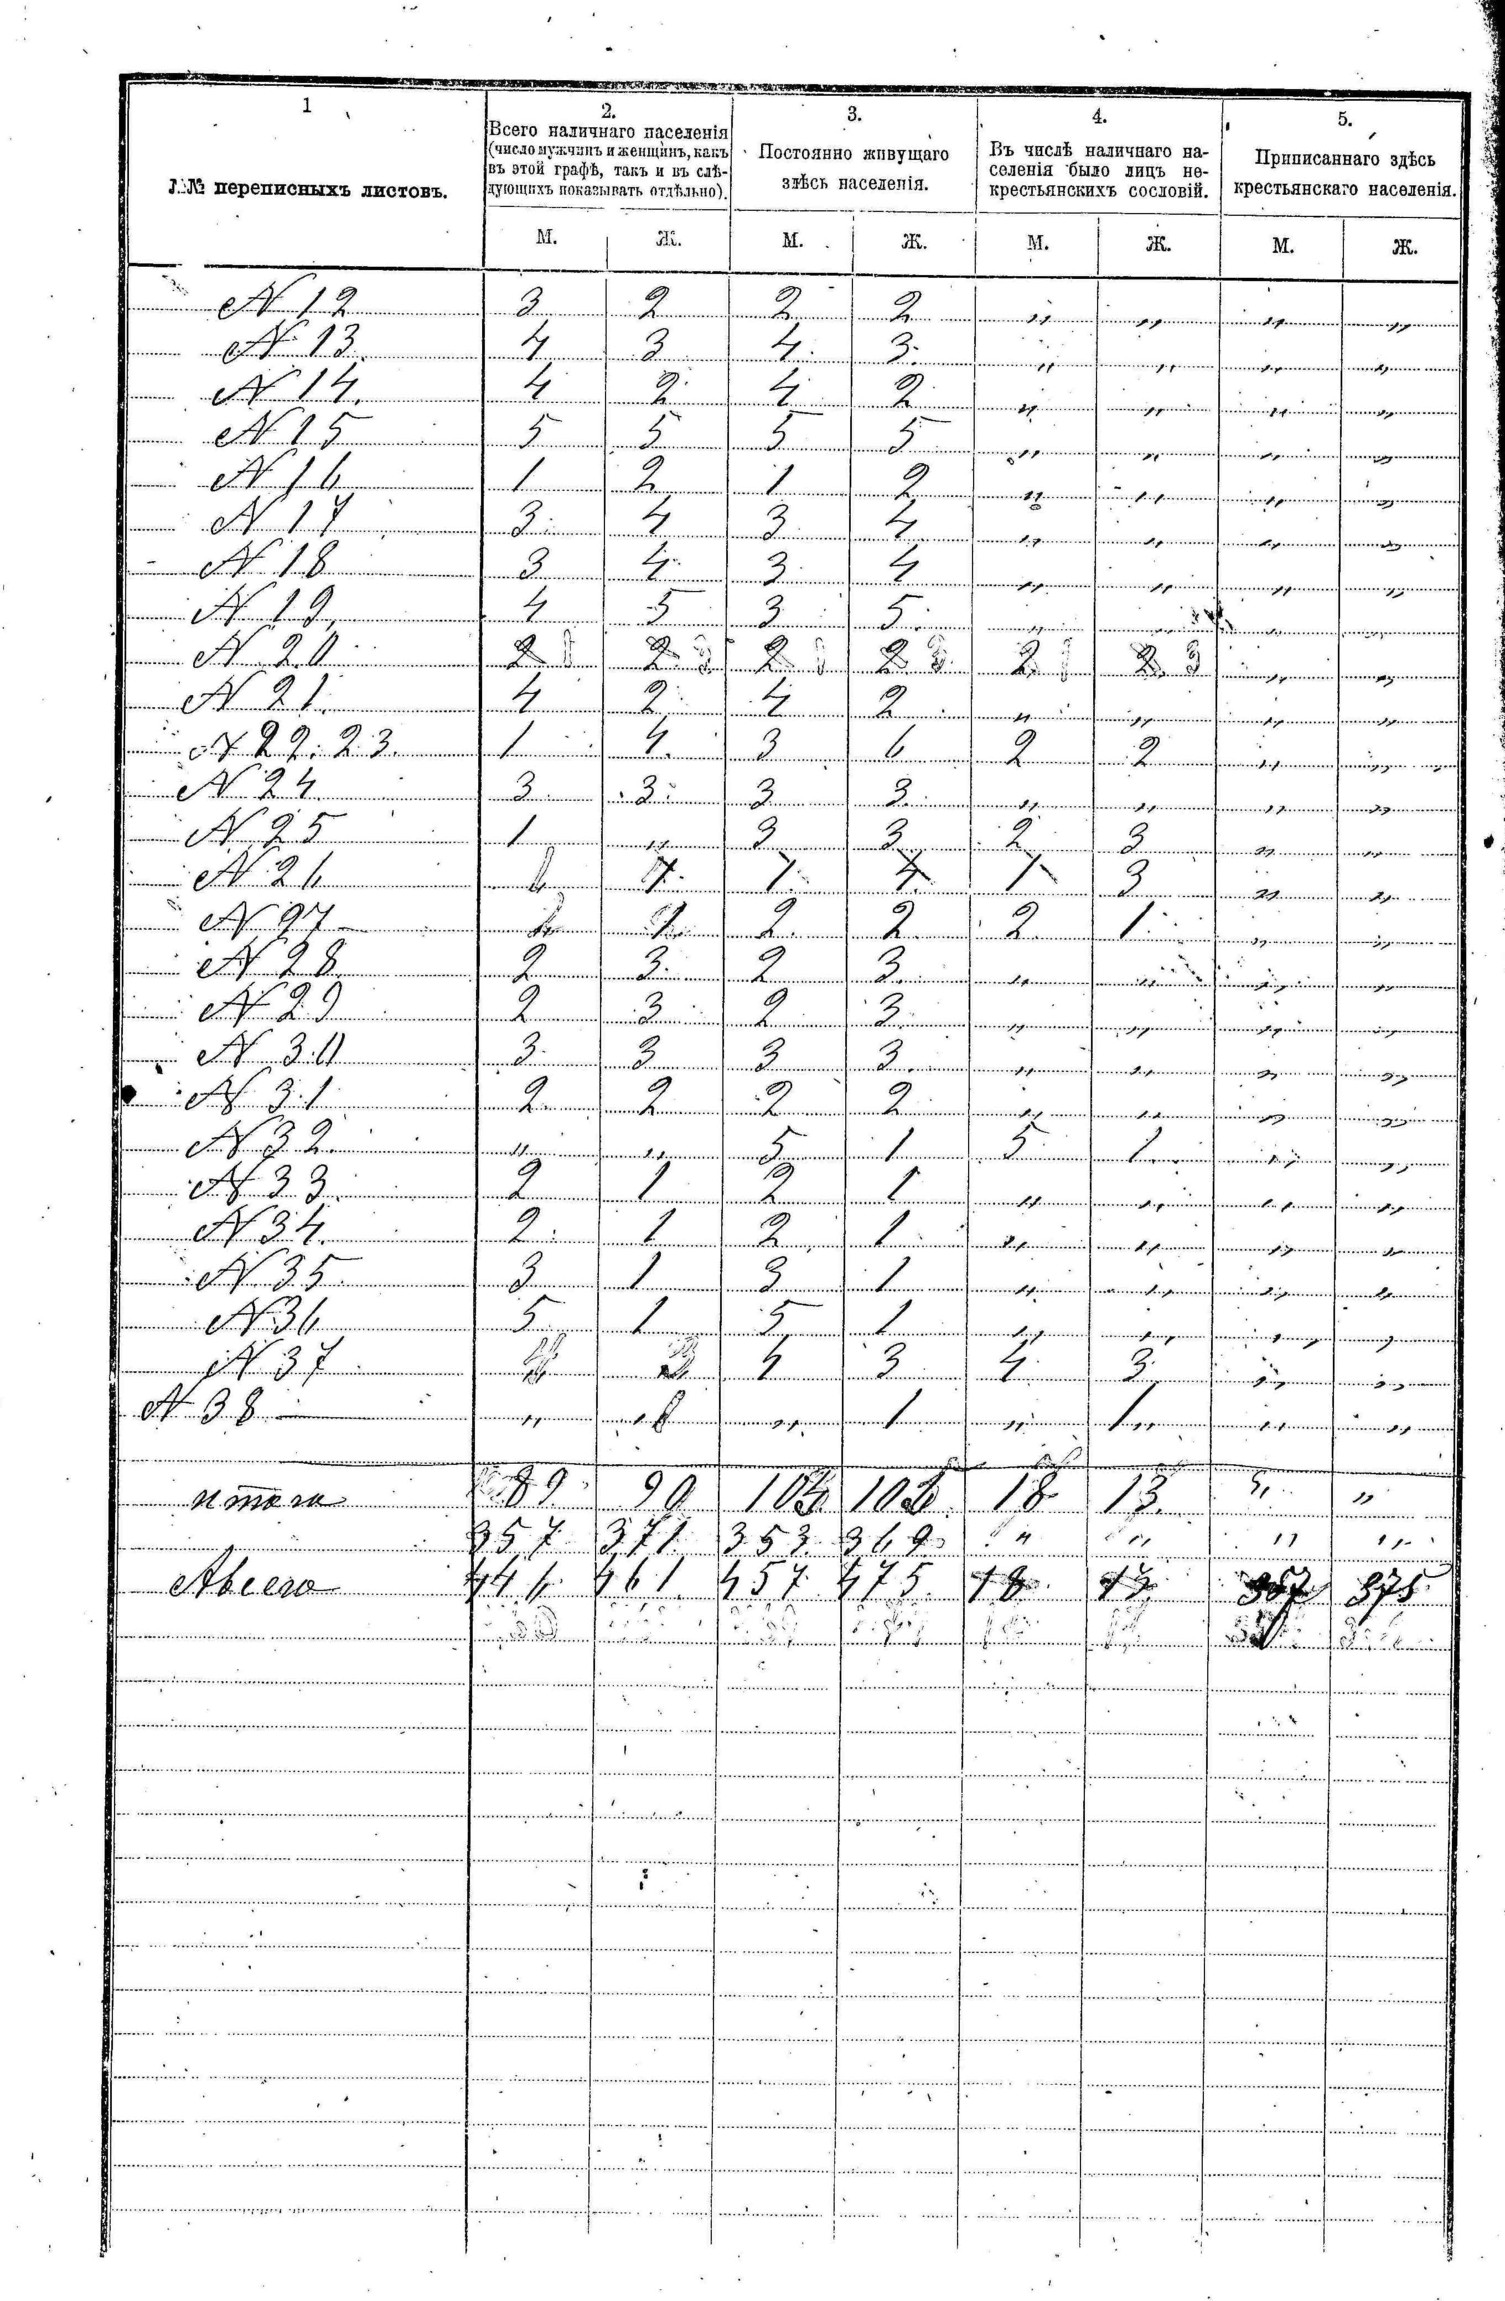 1 2. 3. 4. 5.
№№ переписныхъ листовъ.
Всего наличнаго населенія
(число мужчинъ и женщинъ, какъ
въ этой графѣ, такъ и въ слѣ-
дующихъ показывать отдѣльно).
Постоянно живущаго
здѣсь населенія.
Въ числѣ наличнаго на-
селенія было лицъ не-
крестьянскихъ сословій.
Приписаннаго здѣсь
крестьянскаго населенія.
М. Ж. М. Ж. М. Ж. М. Ж.
N 12 3 2 2 2 " " " "
N 13. 4 3 4 3 " " " "
N 14. 4 2 4 2 " " " "
N 15 5 5 5 5 " " " "
N 16 1 2 1 2 " " " "
N 17 3 4 3 4 " " " "
N 18 3 4 3 4 " " " "
N 19. 4 5 3 5 " " " "
N 20 2 2 2 2 2 2 " "
N 21. 4 2 4 2 " " " "
N 22. 23. 1 4 3 6 2 2 " "
N 24 3 3 3 3 " " " "
N 25 1 " 3 3 2 3 " "
N 26 1 4 1 3 " "
N 27 2 2 2 1 " "
N 28 2 3 2 3 " " " "
N 29 2 3 2 3 " " " "
N 30 3 3 3 3 " " " "
N 31 2 2 2 2 " " " "
N 32 " " 5 1 5 1 " "
N 33. 2 1 2 1 " " " "
N 34. 2 1 2 1 " " " "
N 35 3 1 3 1 " " " "
N 36 5 1 5 1 " " " "
N 37 4 3 4 3 " "
N 38 " " 1 " 1 " "
итого 89 90 18 13 " "
357 371 353 369 " " " "
Авсего 446 461 457 475 18 13 357 375